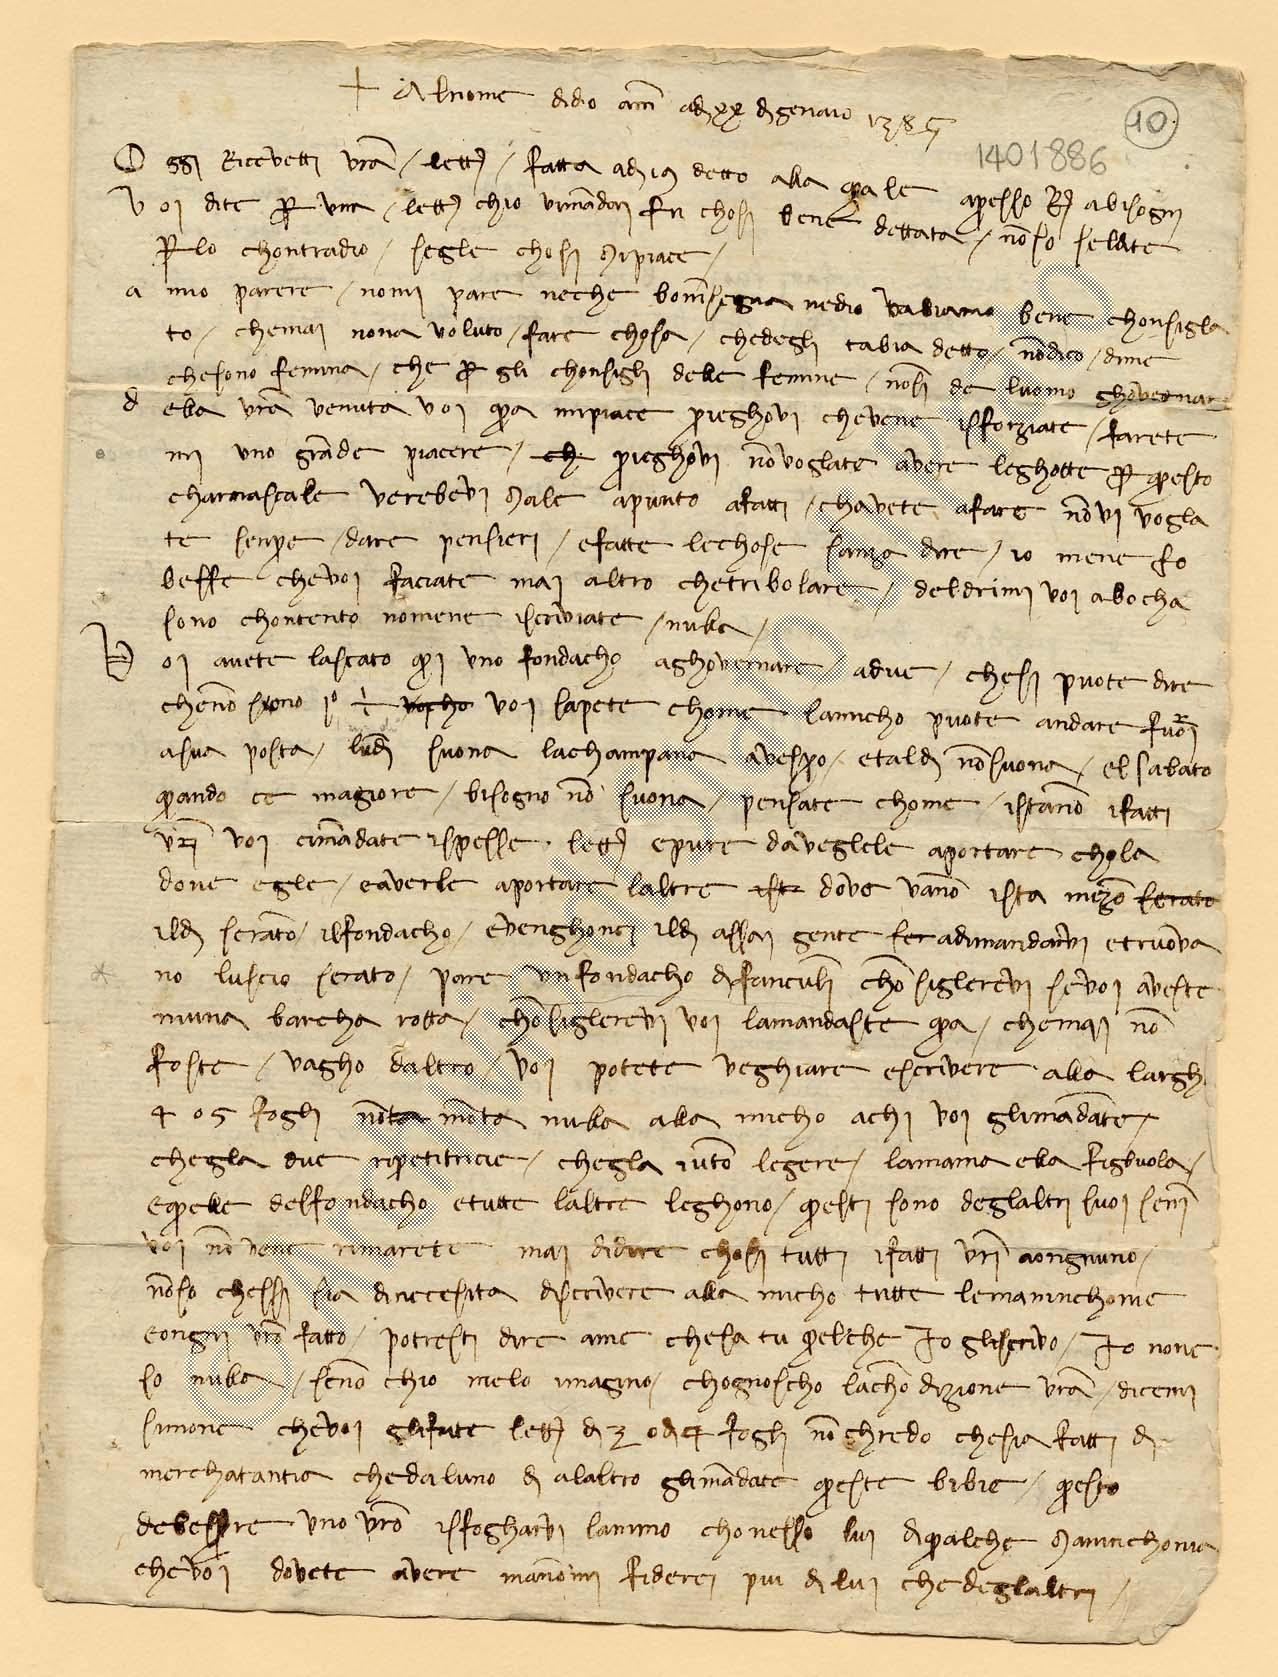 + Al nome di dio am̄ adi xx di gennaio 1385
10
1401886
Oggi Ricevetti vr̄a / lett / fatta adi 19 detto alla quale apresso R abisogni
Voi dite per una / lett chio vimandai fu chosi bene dettata / nōso seldite
Per lo chontradio / segle chosi mi piace /
a mio parere / nomi pare neche bonīsegna nedio vabiamo bene chonsigla
to / chemai nona voluto / fare chosa / chedegli tabia detto / nōdico / dime
chesono femina / che per gli chonsigli delle femine / nōsi de luomo ghovernare
della vr̄a venuta voi qua mi piace prieghovi chevene isforziate / farete
mi uno grāde piacere / prieghovi nōvoglate avere leghotte per questo
charnascale verebevi male apunto afatti / chavete afare nōvi vogla
te senpre / dare pensieri / efatte lechose sanza dire / io mene fo
beffe chevoi faciate mai altro chetribolare / deldirmi voi abocha
sono chontento nomene iscriviate / nulla /
Voi avete lascato qui uno fondacho aghovernare adue / chesi puote dire
chenō sono voi sapete chome lamicho puote andare fuori
asua posta / ludi suona lachampana avespro / etaldi nōsuona / el sabato
quando ce magiore / bisogno nō suona / pensate chome / istanō ifatti
vr̄i voi cimādate ispesse lett epure daveglele aportare chola
dove egle / eaverle aportare laltre dove vanō ista mezō
ildi seratō / ilfondacho / evenghonci ildi assai gente adimandarvi etruova
no luscio serato / pare un fondacho di fanculi chōsiglerevi sevoi aveste
niuna barcha rotta / chōsiglerevi voi lamandaste qua / chemai nō
foste / vagho daltro / voi potete veghiare escrivere alla largha
4 o 5 fogli mōta nulla alla micho achi voi glimādate /
chegla due ripetitricie / chegla iutō legere / lamama ella figluola /
equelle delfondacho etutte laltre leghono / questi sono deglaltri suoi seni
voi nō vene rimarete mai didire chosi tutti ifatti vr̄i aongnuno /
nōso chessi sia dinecesita discrivere alla micho tutte lemaninchonie
eongni vr̄o fatto / potresti dire ame chesa tu quelche Io gliscrivo / Io none
so nulla / senō chio melo imagino / chognoscho lachōdizione vr̄a / dicemi
simone chevoi glifate lett di 3 o di 4 fogli nō chredo chesia fatti di
merchatantia chedaluno di alaltro glimādate queste bibie / questo
debessere uno vr̄o isfogharvi lanimo chonesso lui diqualche maninchonia
chevoi dovete avere manōmi fiderei piu di lui chedeglaltri /